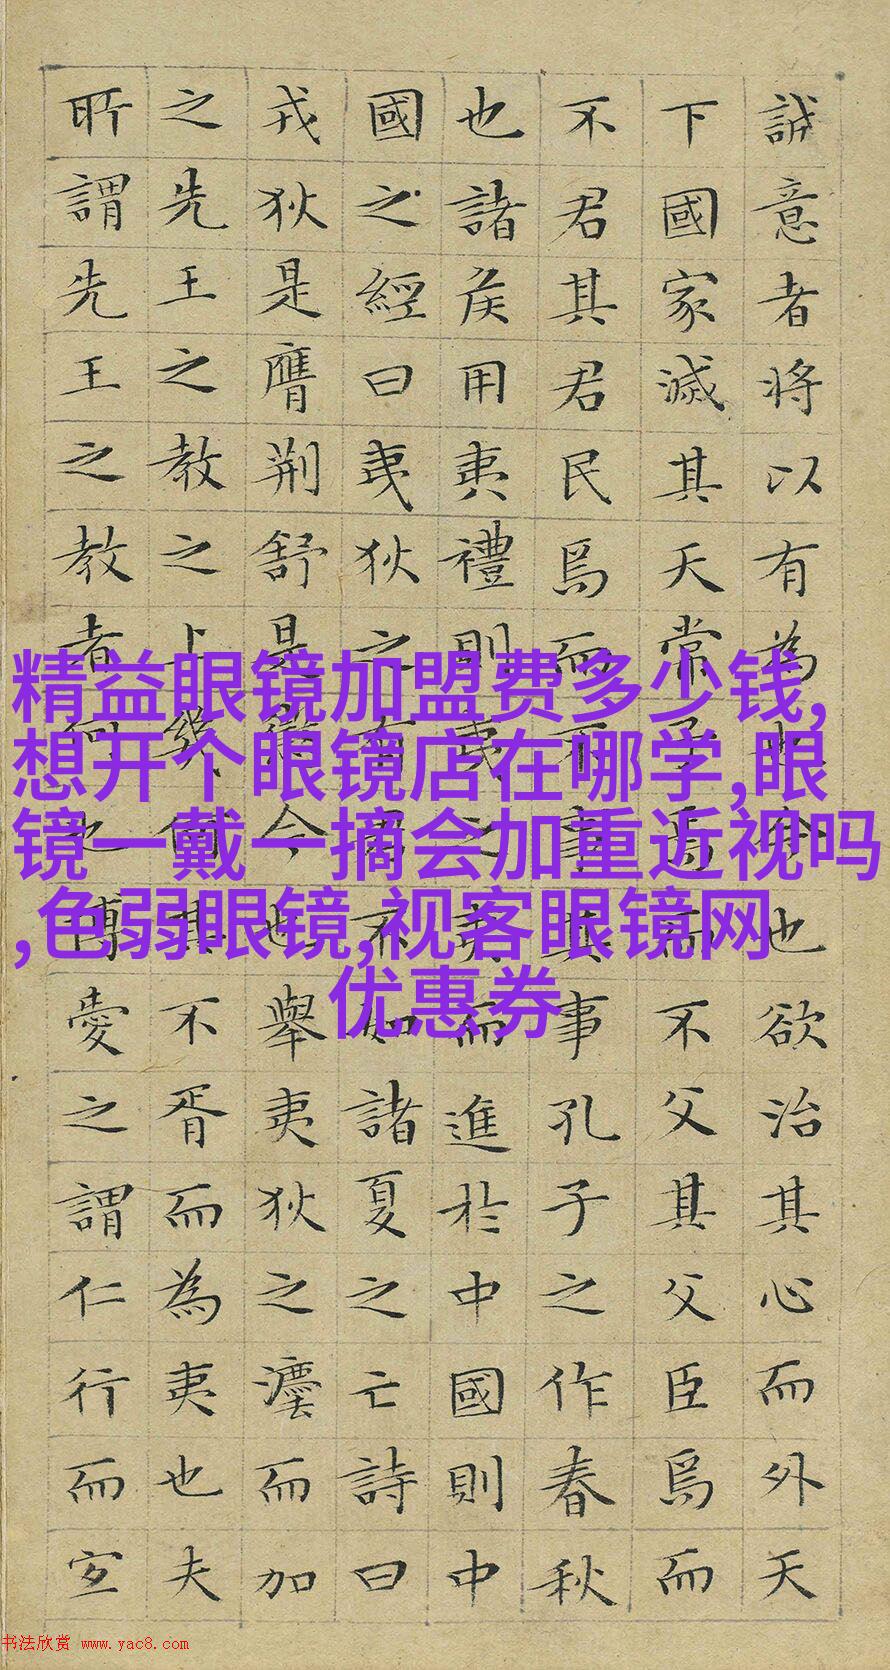 誠意者将以有為也今也欲治其心而外天
下國家滅其天常子焉而不父其父臣焉而
不君其君民焉而不事其事孔子之作春秋
也諸侯用夷禮則夷之夷而進於中國則中
國之經曰夷狄之有君不如諸夏之亡詩曰
戎狄是膺荆舒是懲今也舉夷狄之灋而加
之先王之教之上幾何其不胥而為夷也夫
所謂先王之教者何也博愛之謂仁行而宜
精益眼镜加盟费多少钱,
想开个眼镜店在哪学,眼
镜一戴一摘会加重近视吗
,色弱眼镜,视客眼镜网
优惠券
书法欣赏 www.yac8.com